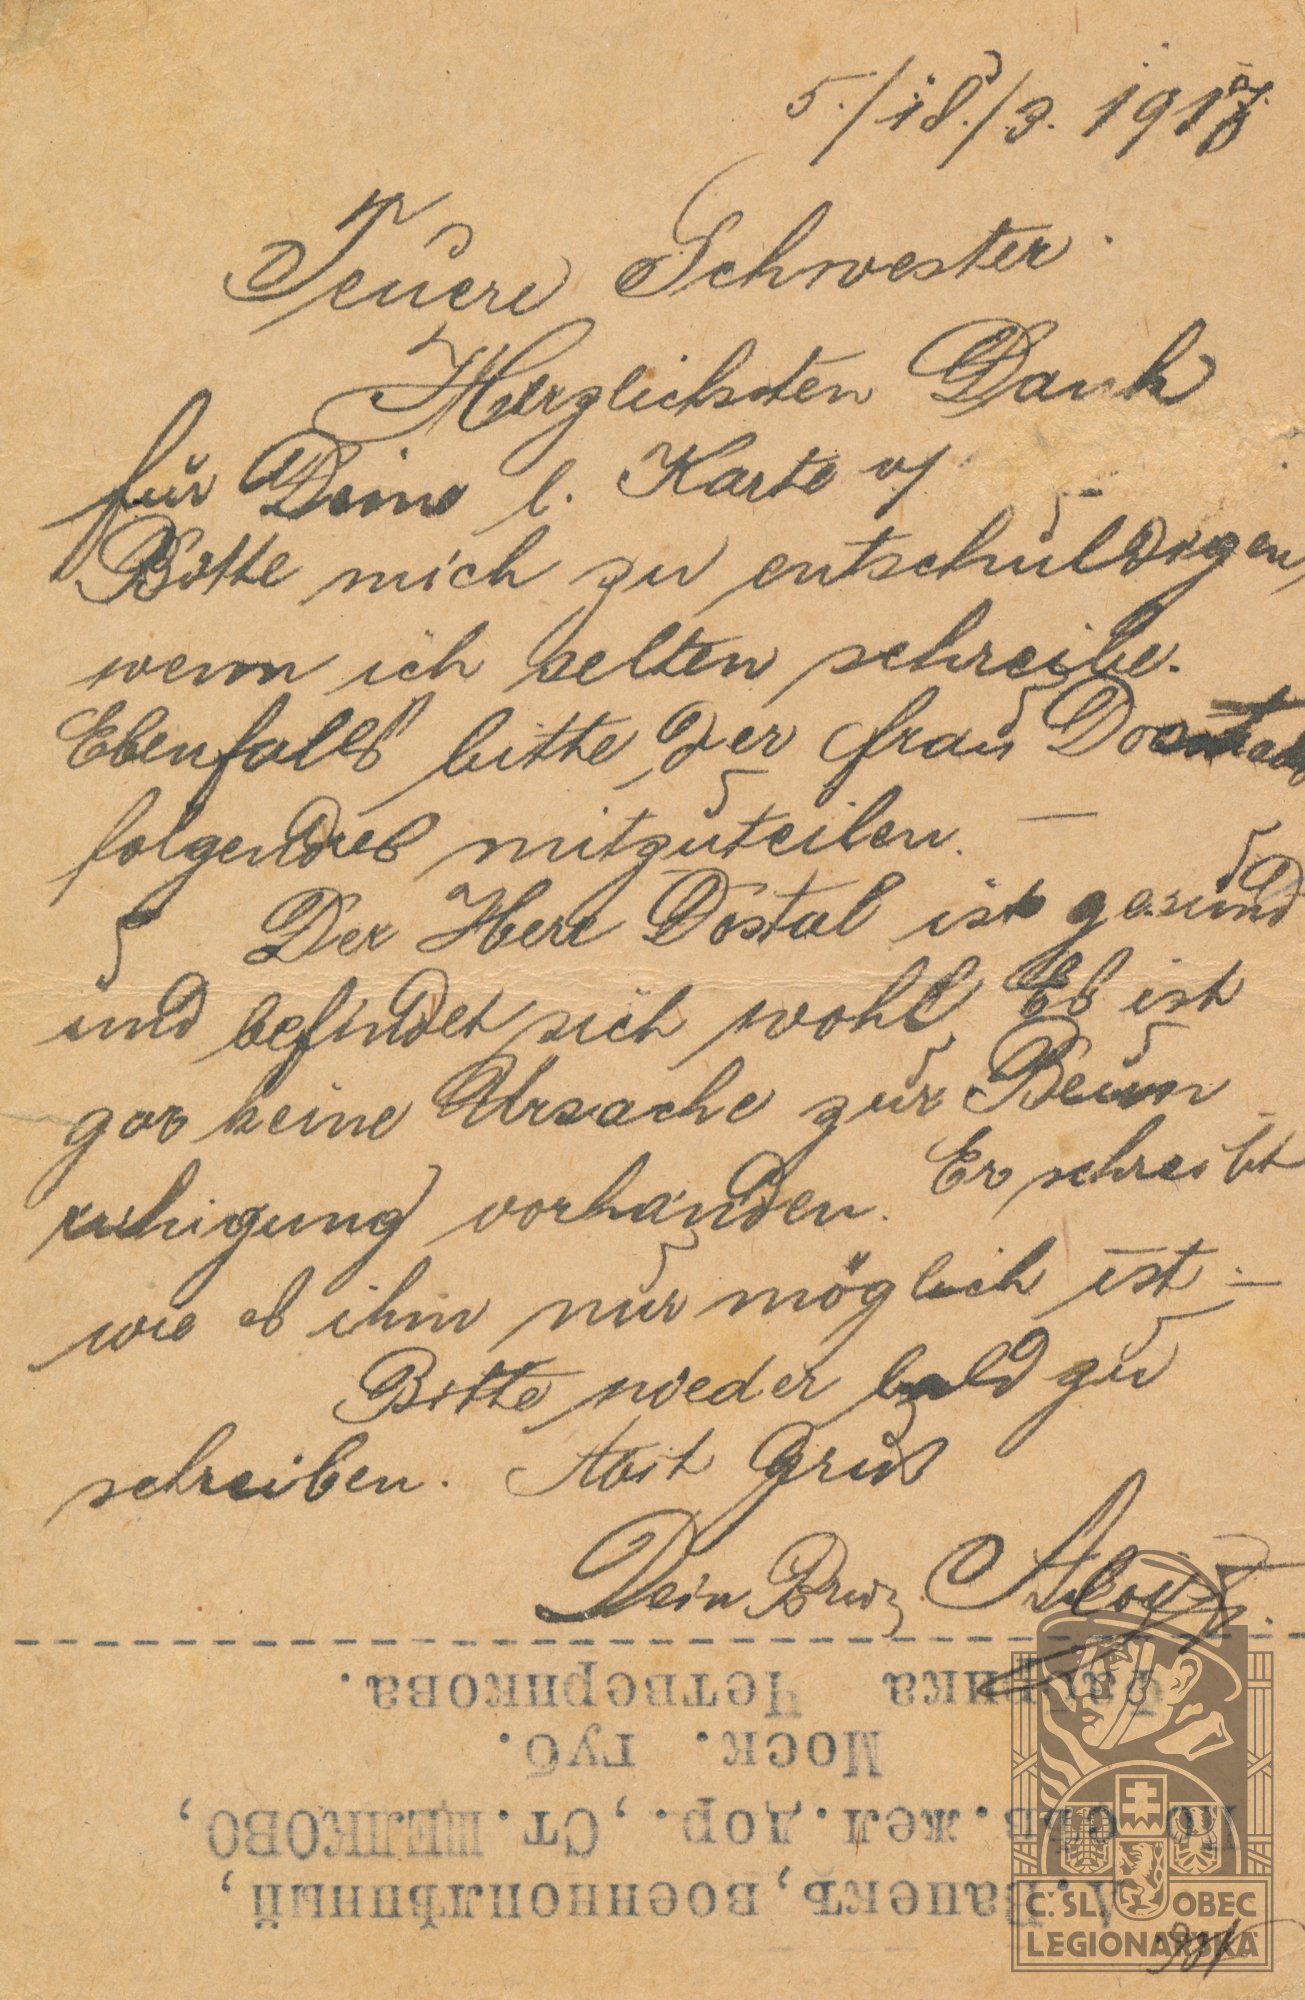 5./18./3. 1917.
Teuere Schwester.
Herzlichsten Dank
für Deine l. Karte v/
Bitte mich zu entschuldigen,
wenn ich selten schreibe.
Ebenfalls bitte, der Frau
folgendes mitzuteilen. —
Der Herr Dostal ist gesund
und befindet sich wohl. Es ist
gar keine Ursache zur Beun
ruhigung vorhanden. Er schreibt
wie es ihm nur möglich ist. —
Bitte wieder bald zu
schreiben. Mit Gruß
Dein Bruder Alois.
Фабрика Четверикова.
Моск. губ.
по Сѣв.жел.дор., Ст. ЩЕЛКОВО,
военноплѣнный,
Č. SL. OBEC
LEGIONÁŘSKÁ